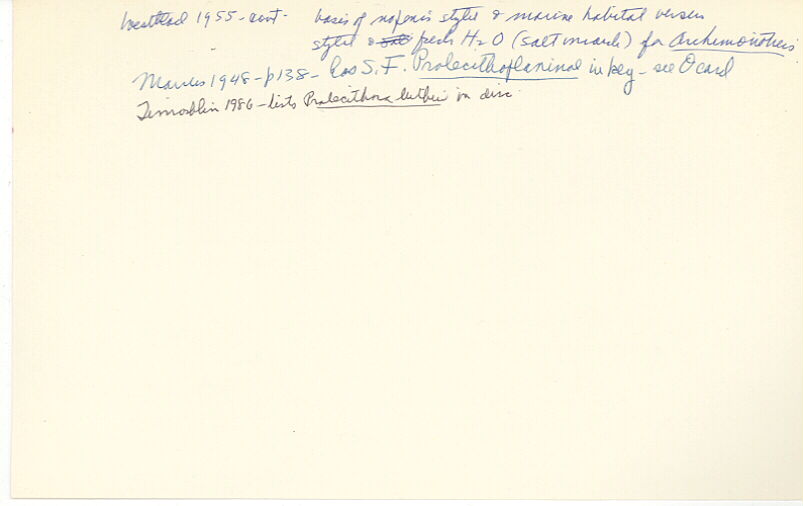 Westblad 1955 - cont - basis of no penis stylet & marine habitat versus
stylet & fresh H2O (salt marsh) for Archimonotresis
Marcus 1948 - p 138 - has S.F. Prolecithoplaninae in key - see O card
Timoshkin 1986 - lists Prolecithora lutheri in disc.